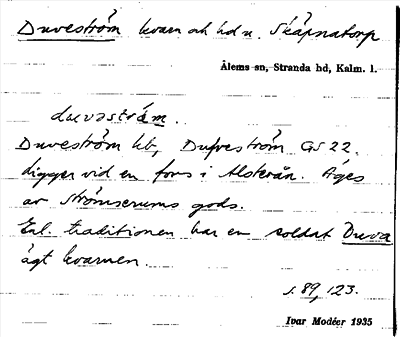 Duveström kvarn och hd u. Skäpnatorp
Ålems sn, Stranda hd, Kalm. l.
duvəstrám.
Duveström hb, Dufveström GS 22.
Ligger vid en fors i Alsterån. Äges
av Strömserums gods.
Enl. traditionen har en soldat Duva
ägt kvarnen.
s. 89, 123.
Ivar Modéer 1935